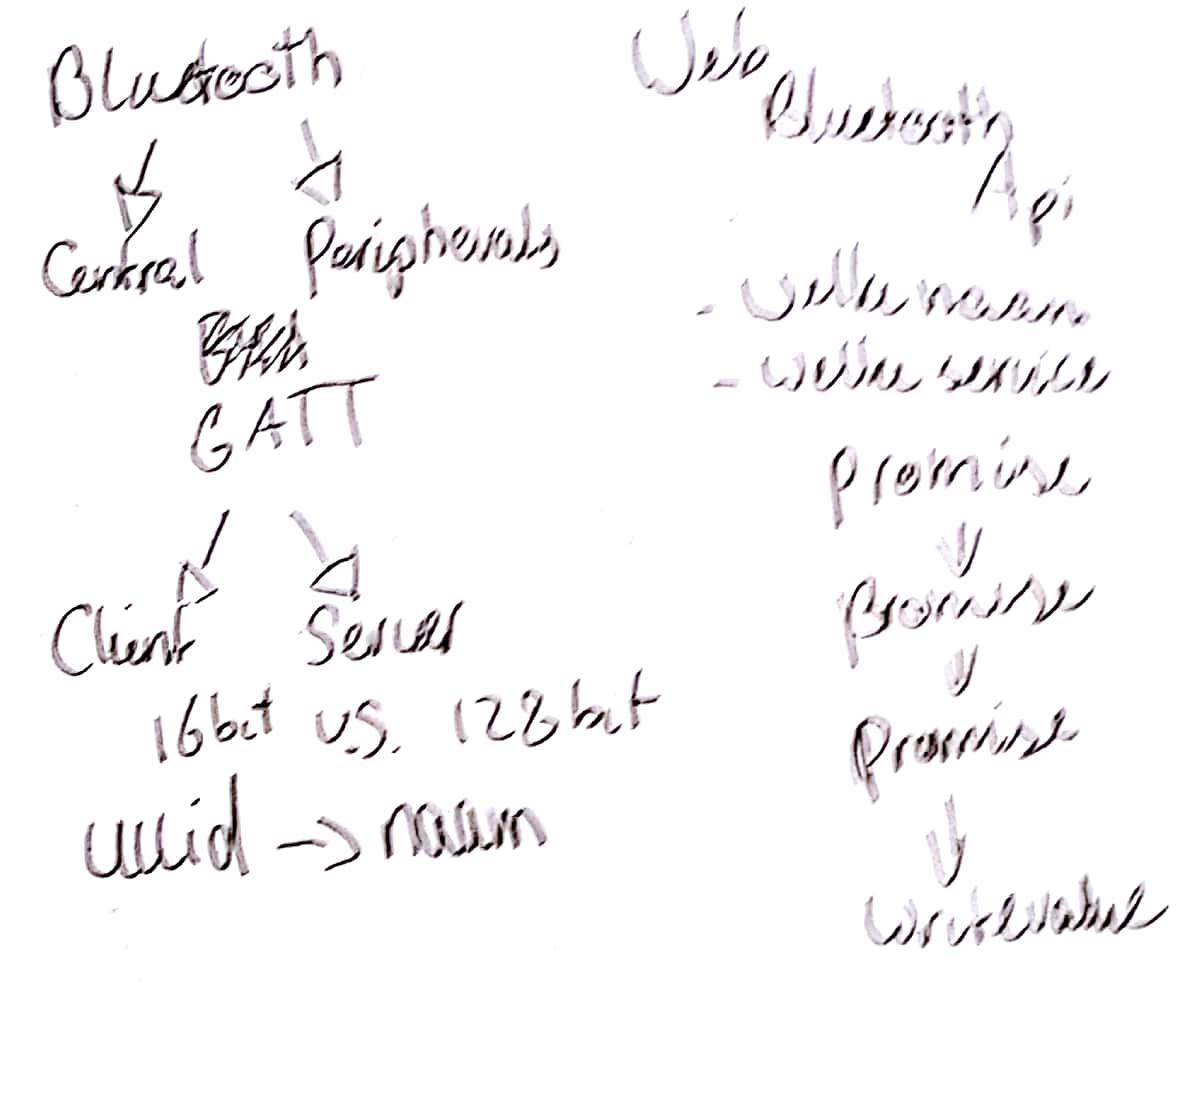 Bluetooth
Central Peripherals
GATT
Client Server
16bit v.s. 128bit
uuid -> naam
Web
Bluetooth
Api
- welke naam
- welke service
promise
promise
promise
writevalue